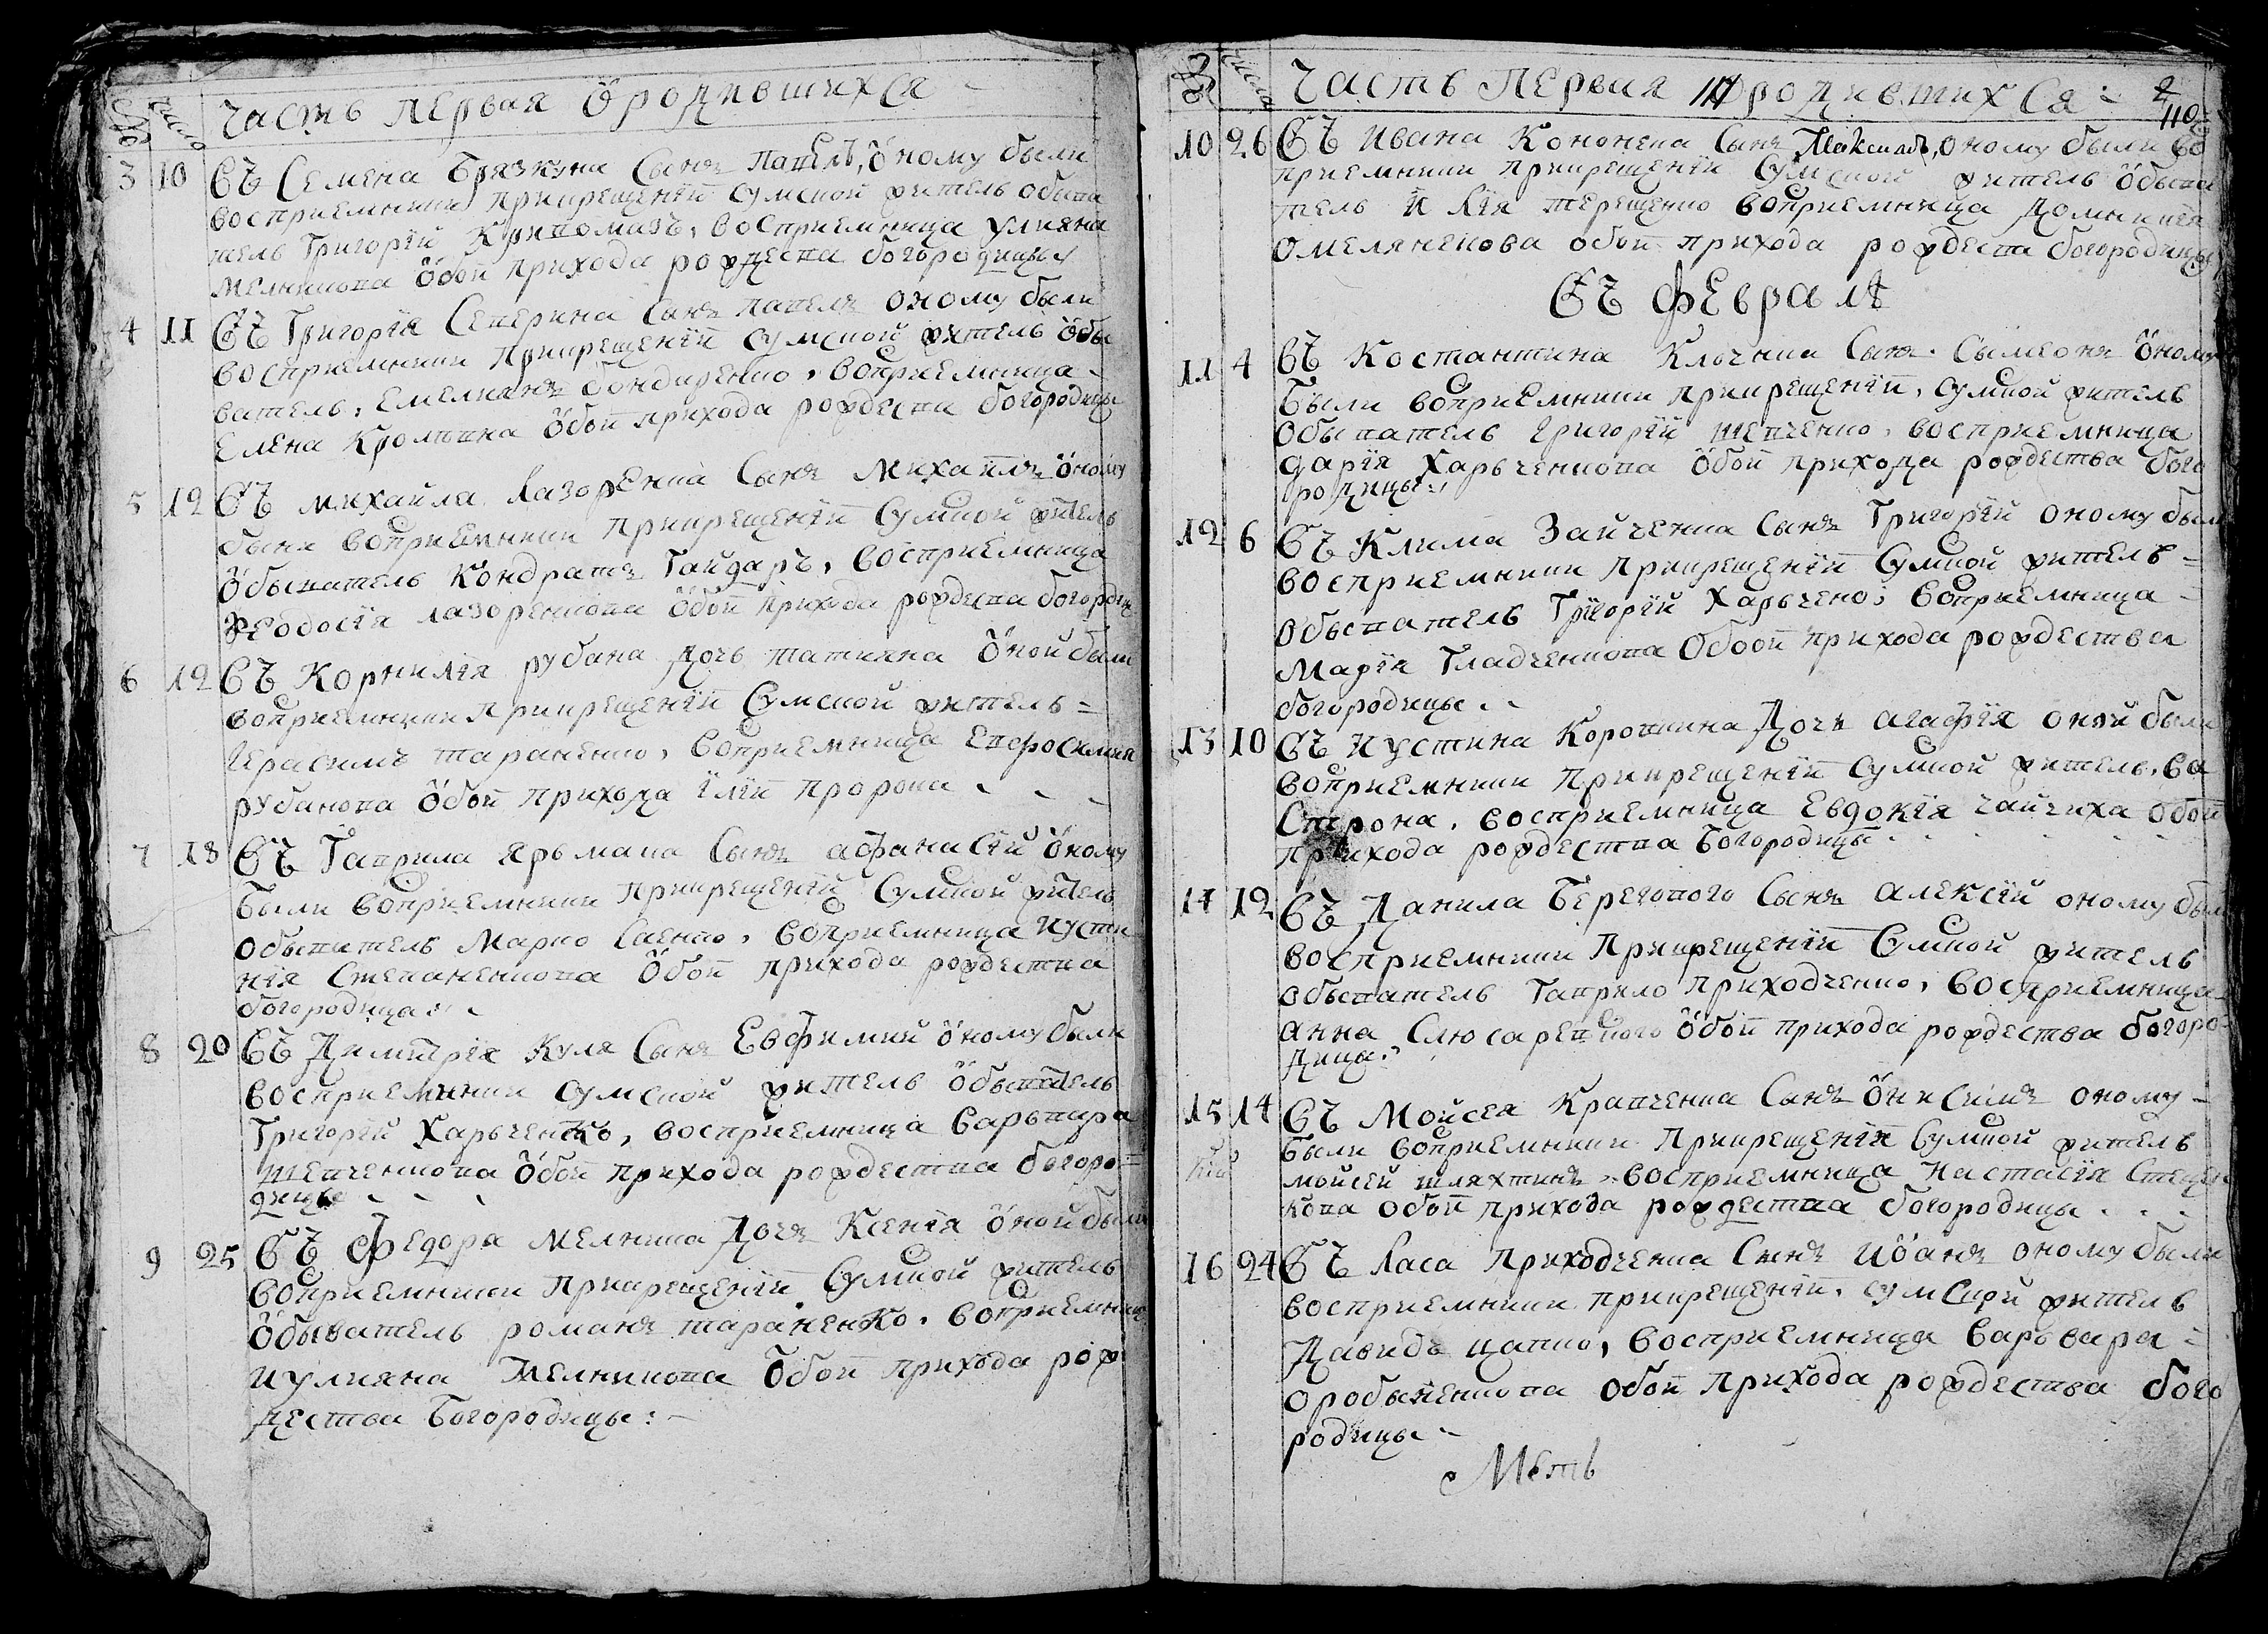 Часть первая ӧ родившихся
число
3 10 Въ Семена Брязкуна Сынъ павелъ, ӧному были
восприемники прикрещенїи сумской житель обыва
тель Григорїй Кривомазъ, восприемница улияна
мелникова ӧбои прихода рождества богородицы
4 11 Въ Григорїя Северина Сынъ павелъ оному были
восприемники прикрещенїи сумской житель ӧбы
ватель, емелиянъ бондаренко, воприемница
Елена Кромпина ӧбои прихода рождества богородицы
5 12 Въ михайла Лазоренка Сынъ михаилъ ӧному
были воприемники прикрещенїи Сумской житель
ӧбыватель Кондратъ Гайдаръ, восприемница
Феодосїя лазоренкова ӧбои прихода рождества богородиц
6 12 Въ Корнилїя рубана дочь татияна ӧной были
воприемники прикрещенїи Сумской житель =
Герасимъ тараненко, воприемница Евфросимия
рубанова ӧбои прихода їлїи пророка
7 18 Въ Гаврила ярьмака Сынъ афанасїй ӧному
были воприемники прикрещенїи Сумской житель
обыватель Марко Саенко, воприемница Иусти
нїя Степаненкова ӧбои прихода рождества
богородица
8 20 Въ Димитрїя Куля Сынъ Евфимий ӧному были
восприемники сумской житель ӧбыватель
Григорїй Харьченко, восприемница Варьвара
шевченкова ӧбои прихода рождества богоро=
дицы
9 25 Въ Федора мелника Дочъ Ксенїя ӧной были
воприемники прикрещенїи Сумской житель
ӧбыватель романъ тараненко, воприемниц
иулияна Мелникова ӧбои прихода рож
дества Богородицы:
Часть Первая ӧ родившихся 2
110
число
10 26 Въ Ивана Кононена Сынъ оному были во
приемники прикрещенїи Сумской житель ӧбыва
тель терещенко воприемница домникїя
омеляненкова обои прихода рождества богородицы
Въ Февралѣ
11 4 Въ Костантина Ключника Сынъ Сымеонъ ӧному
были воприемники прикрещенїи, сумской житель
обыватель Григорїй шевченко, восприемница
дарїя Харьченкова ӧбои прихода рождества бого
родицы
12 6 Въ Клима Зайченка Сынъ Григорїй оному были
восприемники прикрещенїи Сумской житель =
обыватель Григорїй Харьчено, воприемница
Марїя Гладченкова Обоои прихода рождества
богородицы
13 10 Въ Иустина Коропкина Дочъ агафїя оной были
воприемники прикрещенїи сумской житель, Са
Строна, восприемница Евдокїя чайчиха обои
прихода рождества Богородицы
14 12 Въ Данила Берегового Сынъ алексїй оному были
восприемники прикрещенїи Сумской житель
обыватель Гаврило приходченко, восприемница
анна ӧбои прихода рождества богоро
дицы
15 14 Въ Мойсея Кравченка Сынъ ӧнисимъ оному
были воприемники прикрещенїи Сумской житель
мойсей шляхтинъ, восприемница настасїя
кова обои прихода рождества богородицы
16 24 ВъЛаса приходченка Сынъ иӧанъ оному были
восприемники прикрещенїи, сумской житель
Давидъ цапко, восприемница Варьвара =
оробьченкова обои прихода рождества бого
родицы